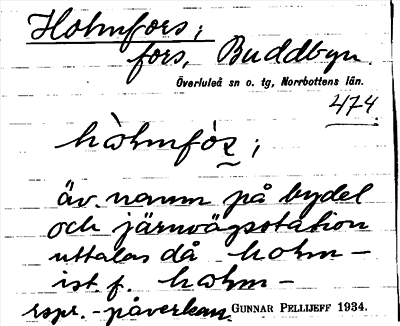 Holmfors;
fors, Buddbyn.
Överluleå sn o. tg, Norrbottens län.
474
hòlmfós;
äv. namn på bydel
och järnvägsstation
uttalas då holm-
ist. f. hòlm-
rspr.-påverkan.
GUNNAR PELLIJEFF 1934.